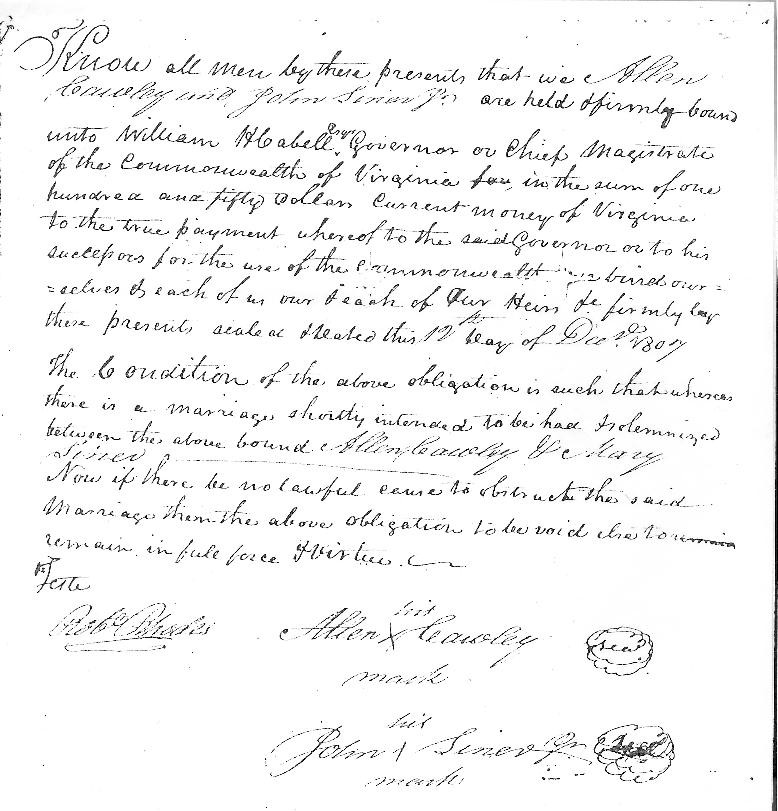 Know all men by these presents that we Allen
Cawley and John Siner Jr. are held & firmly bound
unto William H Cabell Esqr. Governor or Chief Magistrate
of the Commonwealth of Virginia in the sum of one
hundred and fifty Dollars Current money of Virginia
to the true payment whereof to the said Governor or to his
successors for the use of the Commonwealth bind our=
=selves & each of us our & each of Our Heirs &c firmly by
these presents sealed & dated this 12th Day of Decr. 1807
The Condition of the above obligation is such that whereas
there is a marriage shortly intended to be had & solemnized
between the above bound Allen Cawley & Mary
Siner
Now if there be no lawful cause to obstruct the said
Marriage then the above obligation to be void else to remain
remain in full force & virtue.
Teste
Robt. Rhodes
his
Allen X Cawley
mark
seal
his
John \ Siner Jr
mark
seal